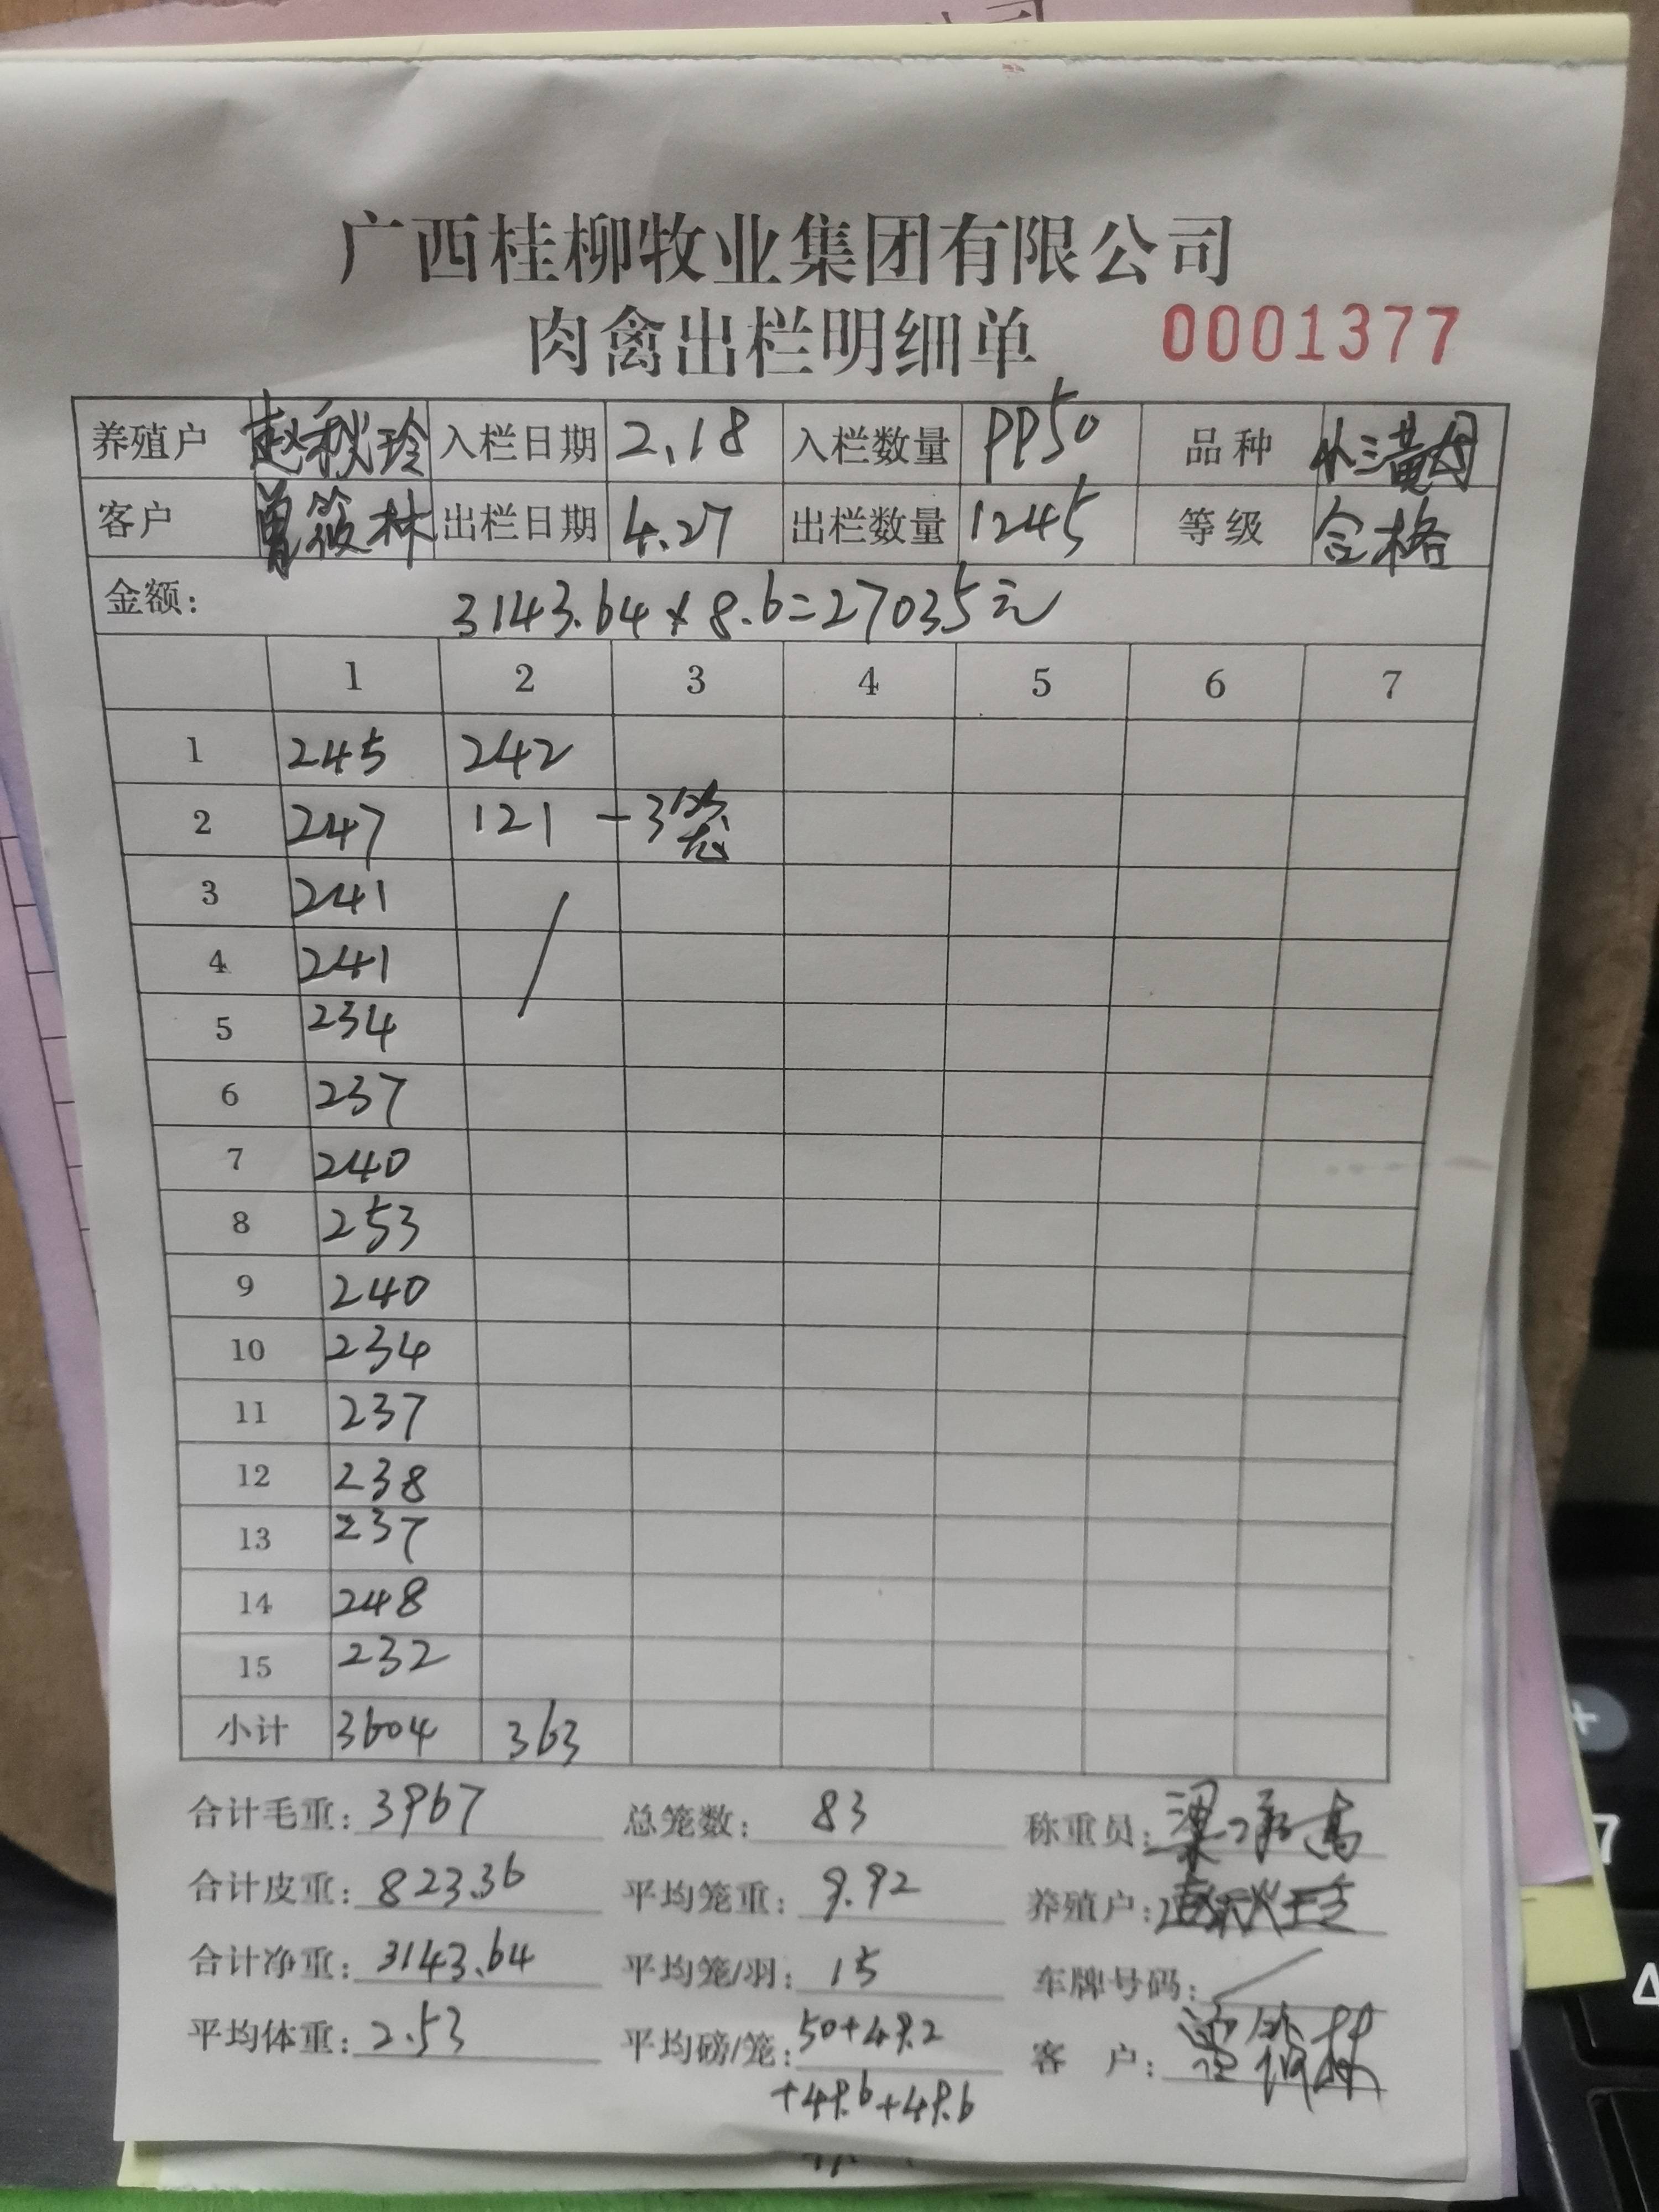 广西桂柳牧业集团有限公司
肉禽出栏明细单 0001377
养殖户 赵秋玲 入栏日期 2.18 入栏数量 9950 品种
客户 曾筱林 出栏日期 4.27 出栏数量 1245 等级 合格
金额: 3143.64×8.6=27035元
1 2 3 4 5 6 7
1 245 242
2 247 121 -3笼
3 241
4 241
5 234
6 237
7 240
8 253
9 240
10 234
11 237
12 238
13 237
14 248
15 232
小计 3604 363
合计毛重: 3967 总笼数: 83 称重员:
合计皮重: 823.36 平均笼重: 9.92 养殖户: 赵秋玲
合计净重: 3143.64 平均笼/羽: 15 车牌号码:
平均体重: 2.53 平均磅/笼: 50+49.2 客 户: 曾筱林
+49.6+49.6